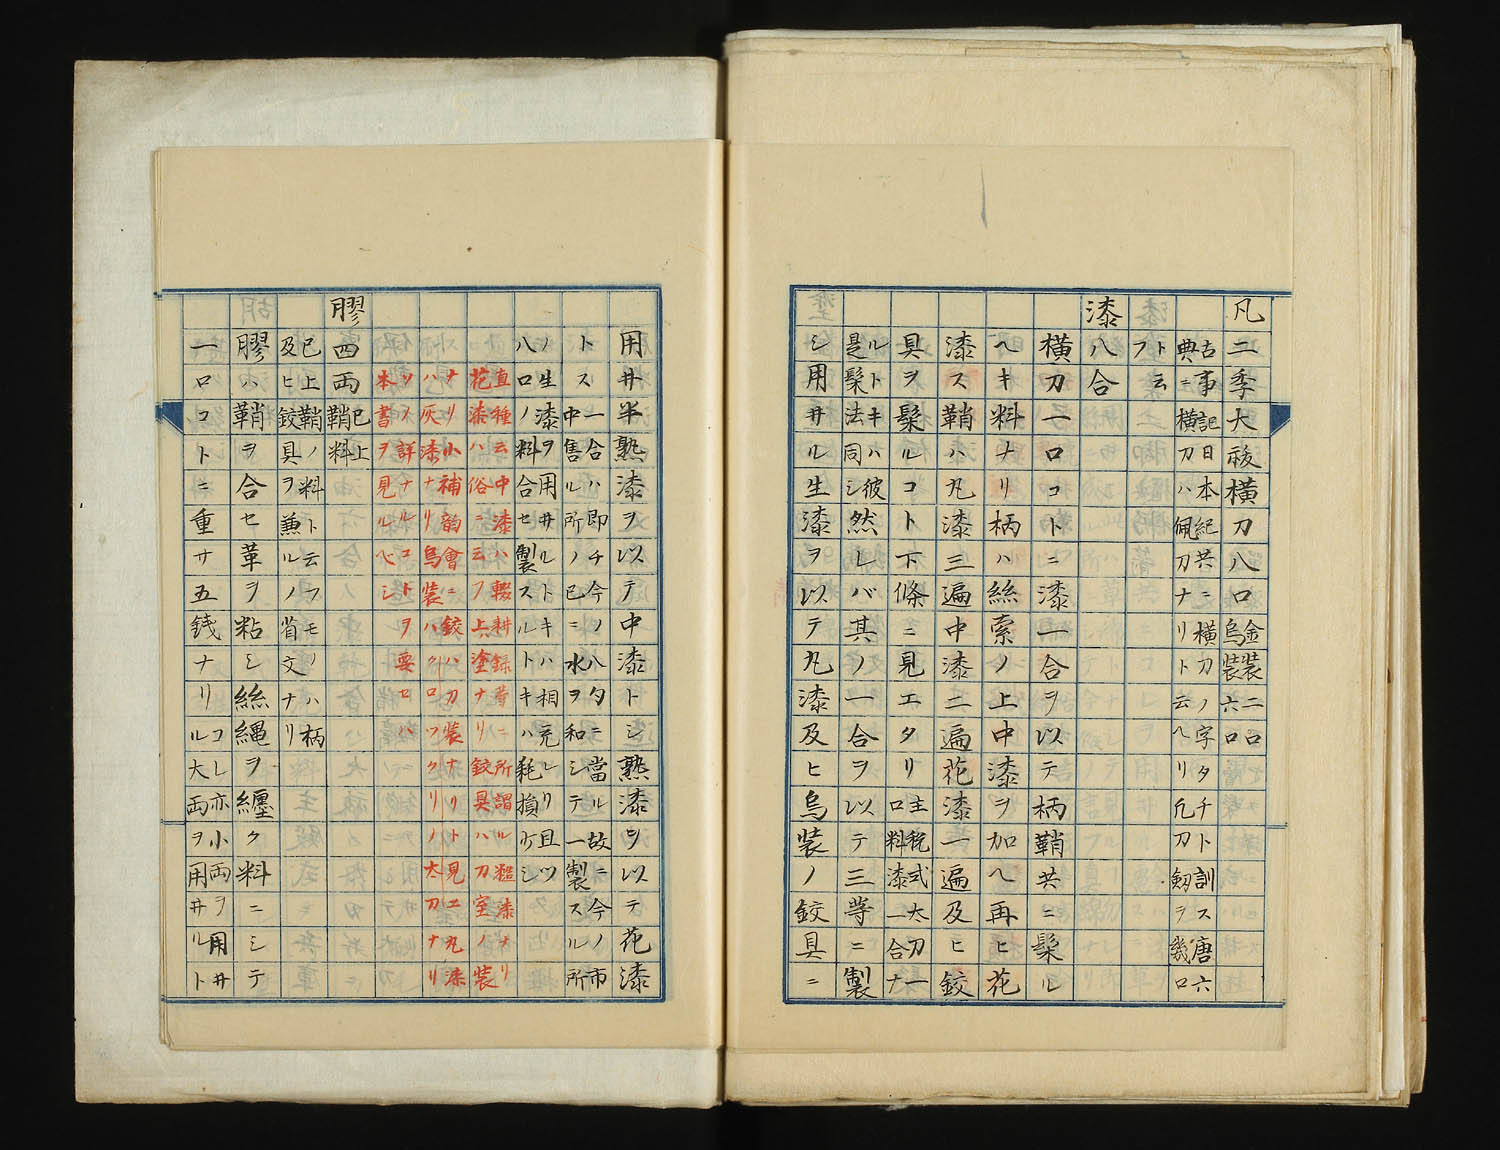 凡二季大祓横刀八口金装二口烏装六口
古事記日本紀共ニ横刀ノ字タチト訓ス唐六
典ニ横刀ハ佩刀ナリト云ヘリ凢刀劔ヲ幾口
フト云
漆八合
横刀一口コトニ漆一合ヲ以テ柄鞘共ニ髹ル
ヘキ料ナリ柄ハ絲索ノ上中漆ヲ加ヘ再ヒ花
漆ス鞘ハ丸漆三遍中漆二遍花漆一遍及ヒ鉸
具ヲ髹ルコト下條ニ見エタリ主税式大刀一
口料漆一合ナ
ルトキハ彼
是髹法同シ然レバ其ノ一合ヲ以テ三等ニ製
シ用井ル生漆ヲ以テ丸漆及ヒ烏装ノ鉸具ニ
用井半熟漆ヲ以テ中漆トシ熟漆ヲ以テ花漆
トス一合ハ即チ今ノ八勺ニ當ル故ニ今ノ市
中售ル所ノ已ニ水ヲ和シテ一製スル所
ノ生漆ヲ用井ルトキハ相充レリ且ツ
八口ノ料合セ製スルトキハ耗損少シ
直種云中漆ハ輟耕録昔ニ所謂ル糙漆ナリ
花漆ハ俗ニ云フ上塗ナリ鉸具ハ刀室ノ装
ナリ小補韵會ニ鉸ハ刀装ナリト見エ丸漆
ハ灰漆ナリ烏装ハクロツクリノ太刀ナリ
ソノ詳ナルコトヲ要セハ
本書見ルベシ
膠四両已上鞘料
已上鞘ノ料ト云フモノハ柄
及ヒ鉸具ヲ兼ルノ省文ナリ
膠ハ鞘ヲ合セ革ヲ粘シ絲縄ヲ纏ク料ニシテ
一口コトニ重サ五銭ナリコレ亦小両ヲ用井
ル大両ヲ用井ルト